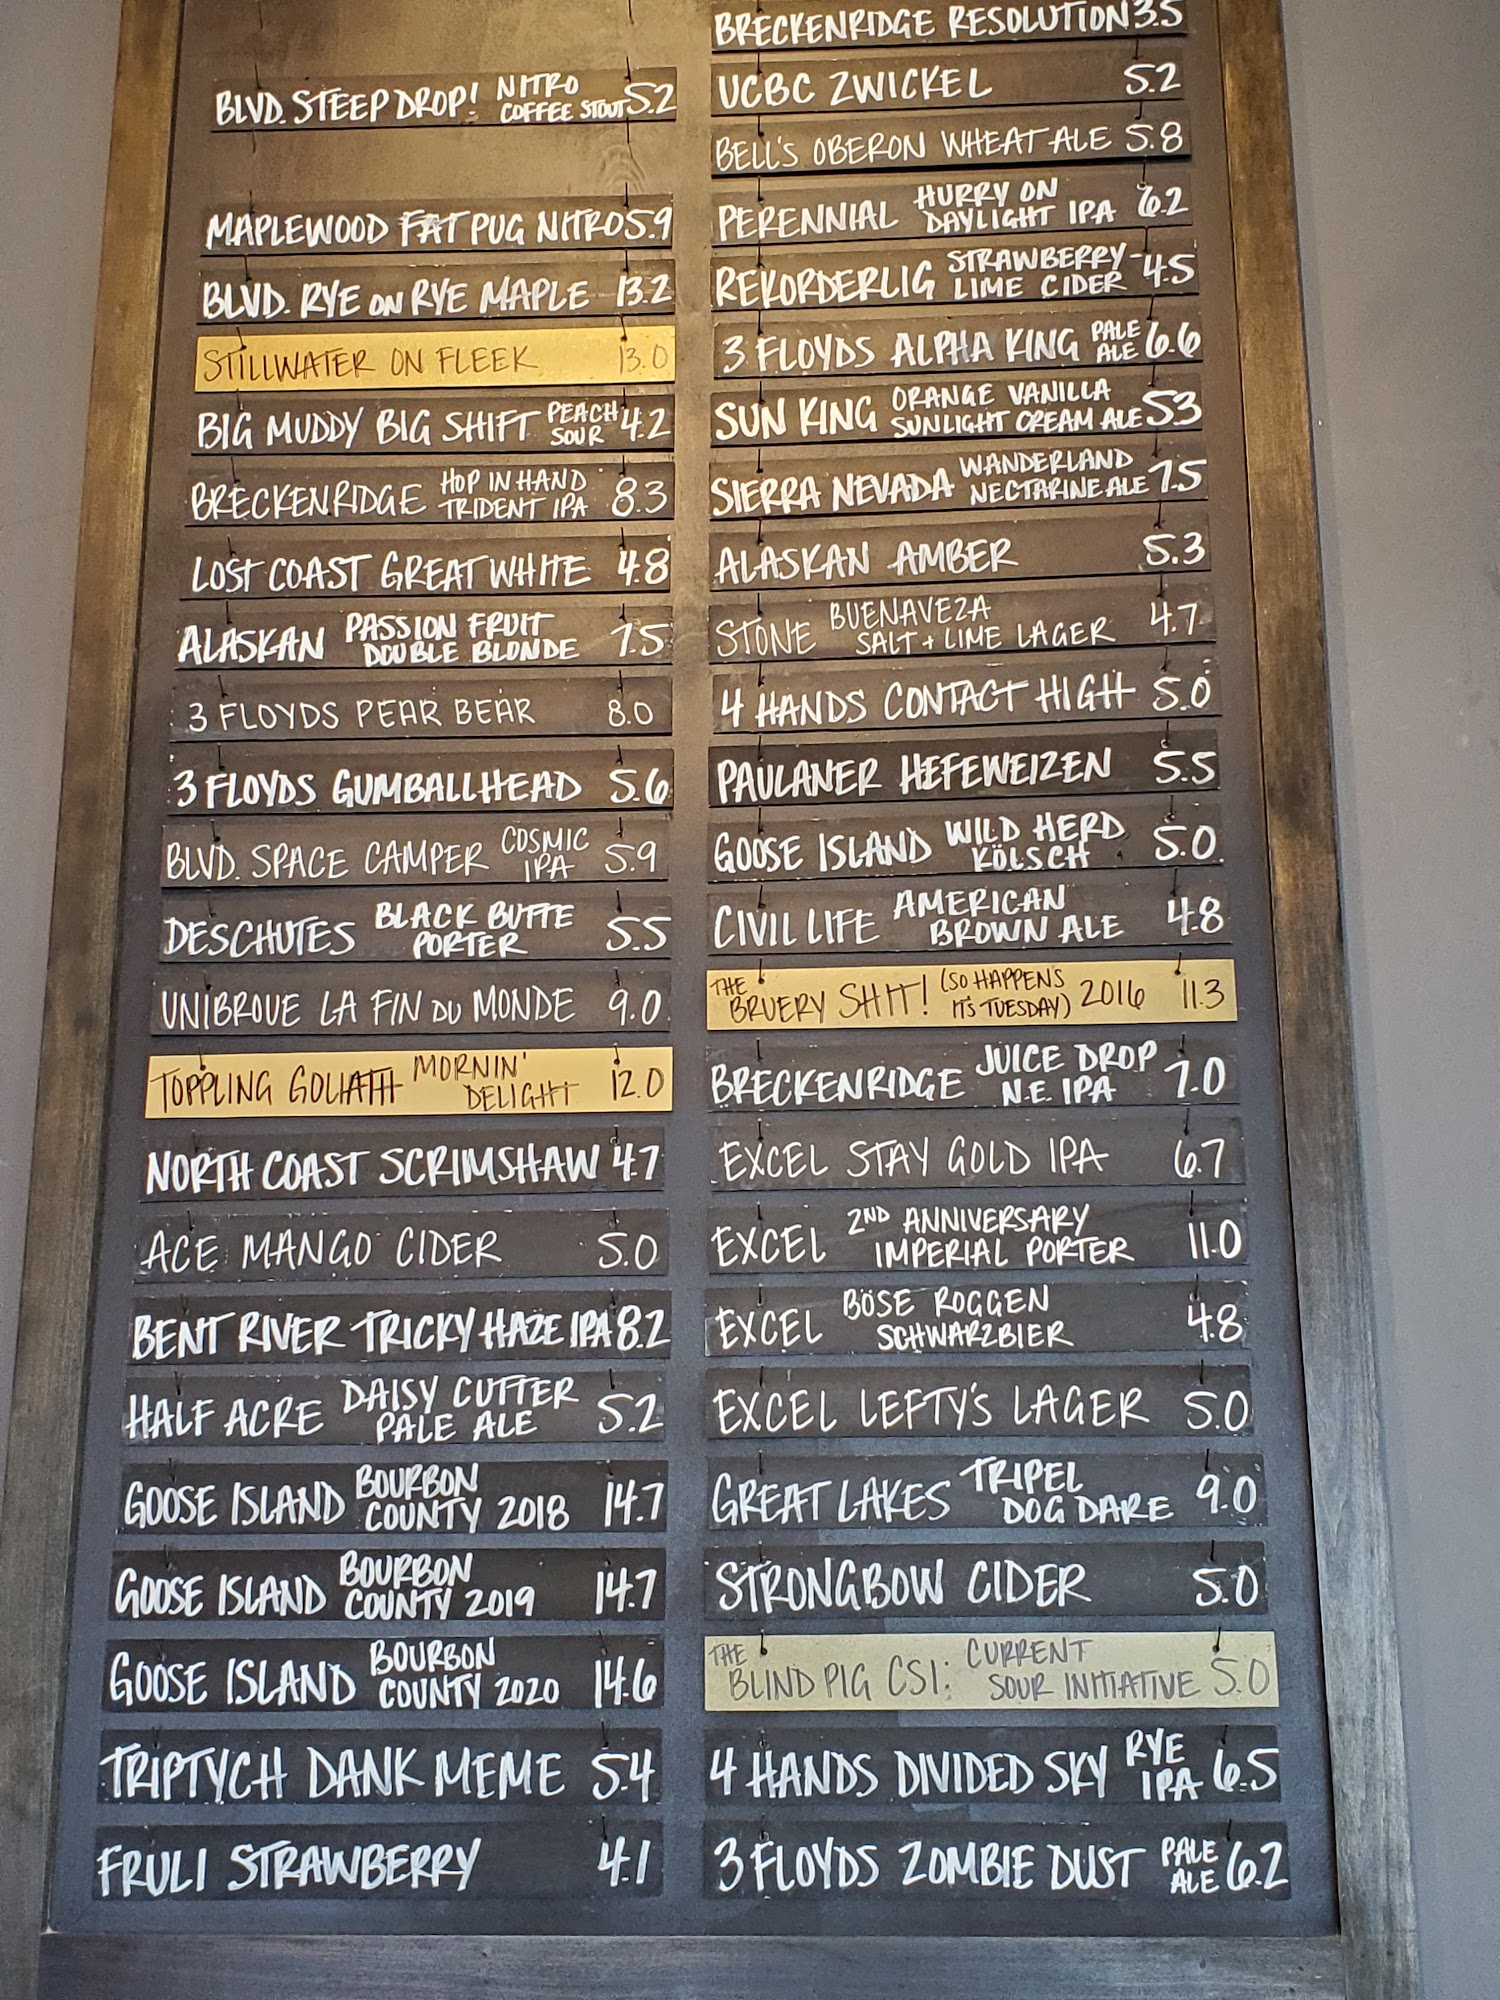 BLVD. STEEP DROP! NITRO COFFEE STOUT 5.2
MAPLEWOOD FAT PUG NITRO 5.9
BLVD. RYE ON RYE MAPLE 13.2
STILLWATER ON FLEEK 13.0
BIG MUDDY BIG SHIFT PEACH SOUR 4.2
BRECKENRIDGE HOP IN HAND TRIDENT IPA 8.3
LOST COAST GREAT WHITE 4.8
ALASKAN PASSION FRUIT DOUBLE BLONDE 7.5
3 FLOYDS PEAR BEAR 8.0
3 FLOYDS GUMBALLHEAD 5.6
BLVD. SPACE CAMPER COSMIC IPA 5.9
DESCHUTES BLACK BUTTE PORTER 5.5
UNIBROUE LA FIN DU MONDE 9.0
TOPPLING GOLIATH MORNIN' DELIGHT 12.0
NORTH COAST SCRIMSHAW 4.7
ACE MANGO CIDER 5.0
BENT RIVER TRICKY HAZE IPA 8.2
HALF ACRE DAISY CUTTER PALE ALE 5.2
GOOSE ISLAND BOURBON COUNTY 2018 14.7
GOOSE ISLAND BOURBON COUNTY 2019 14.7
GOOSE ISLAND BOURBON COUNTY 2020 14.6
TRIPTYCH DANK MEME 5.4
FRULI STRAWBERRY 4.1
BRECKENRIDGE RESOLUTION 3.5
UCBC ZWICKEL 5.2
BELL'S OBERON WHEAT ALE 5.8
PERENNIAL HURRY ON DAYLIGHT IPA 6.2
REKORDERLIG STRAWBERRY-LIME CIDER 4.5
3 FLOYDS ALPHA KING PALE ALE 6.6
SUN KING ORANGE VANILLA SUNLIGHT CREAM ALE 5.3
SIERRA NEVADA WANDERLAND NECTARINE ALE 7.5
ALASKAN AMBER 5.3
STONE BUENAVEZA SALT + LIME LAGER 4.7
4 HANDS CONTACT HIGH 5.0
PAULANER HEFEWEIZEN 5.5
GOOSE ISLAND WILD HERD KÖLSCH 5.0
CIVIL LIFE AMERICAN BROWN ALE 4.8
THE BRUERY SHIT! (SO HAPPENS IT'S TUESDAY) 2016 11.3
BRECKENRIDGE JUICE DROP N.E. IPA 7.0
EXCEL STAY GOLD IPA 6.7
EXCEL 2ND ANNIVERSARY IMPERIAL PORTER 11.0
EXCEL BÖSE ROGGEN SCHWARZBIER 4.8
EXCEL LEFTY'S LAGER 5.0
GREAT LAKES TRIPEL DOG DARE 9.0
STRONGBOW CIDER 5.0
THE BLIND PIG CSI: CURRENT SOUR INITIATIVE 5.0
4 HANDS DIVIDED SKY RYE IPA 6.5
3 FLOYDS ZOMBIE DUST PALE ALE 6.2